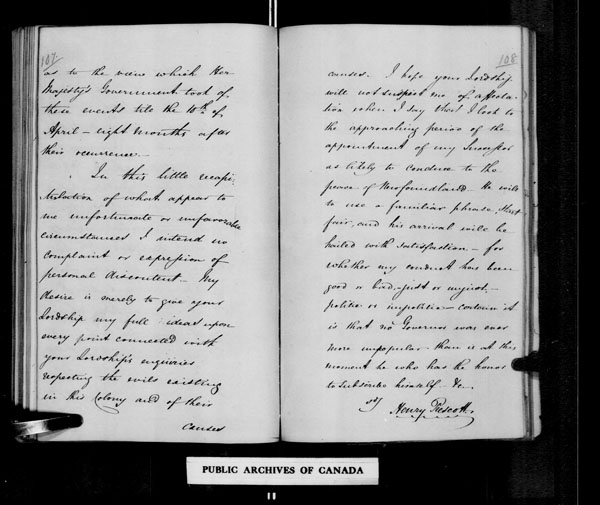 107
as to the view which Her
Majesty's Government took of
these events till the 10th of
April – eight months after
their occurrence.–
In this little recapi-
tulation of what appear to
me unfortunate or unfavorable
circumstances I intend no
complaint or expression of
personal discontent – My
desire is merely to give your
Lordship my full ideas upon
every point connected with
your Lordship's enquiries
respecting the evils existing
in this Colony and of their
Causes
108
causes. I hope your Lordship
will not suspect me of affecta-
tion when I say that I look to
the approaching period of the
appointment of my Successor
as likely to conduce to the
peace of Newfoundland – He will
to use a familiar phrase, Start
fair, and his arrival will be
hailed with satisfaction – for
whether my conduct has been
good or bad, – just or unjust, –
politic or impolitic – certain it
is that no Governor was ever
more unpopular than is at this
moment he who has the honor
to subscribe himself &c.
sd/
Henry Prescott.
PUBLIC ARCHIVES OF CANADA